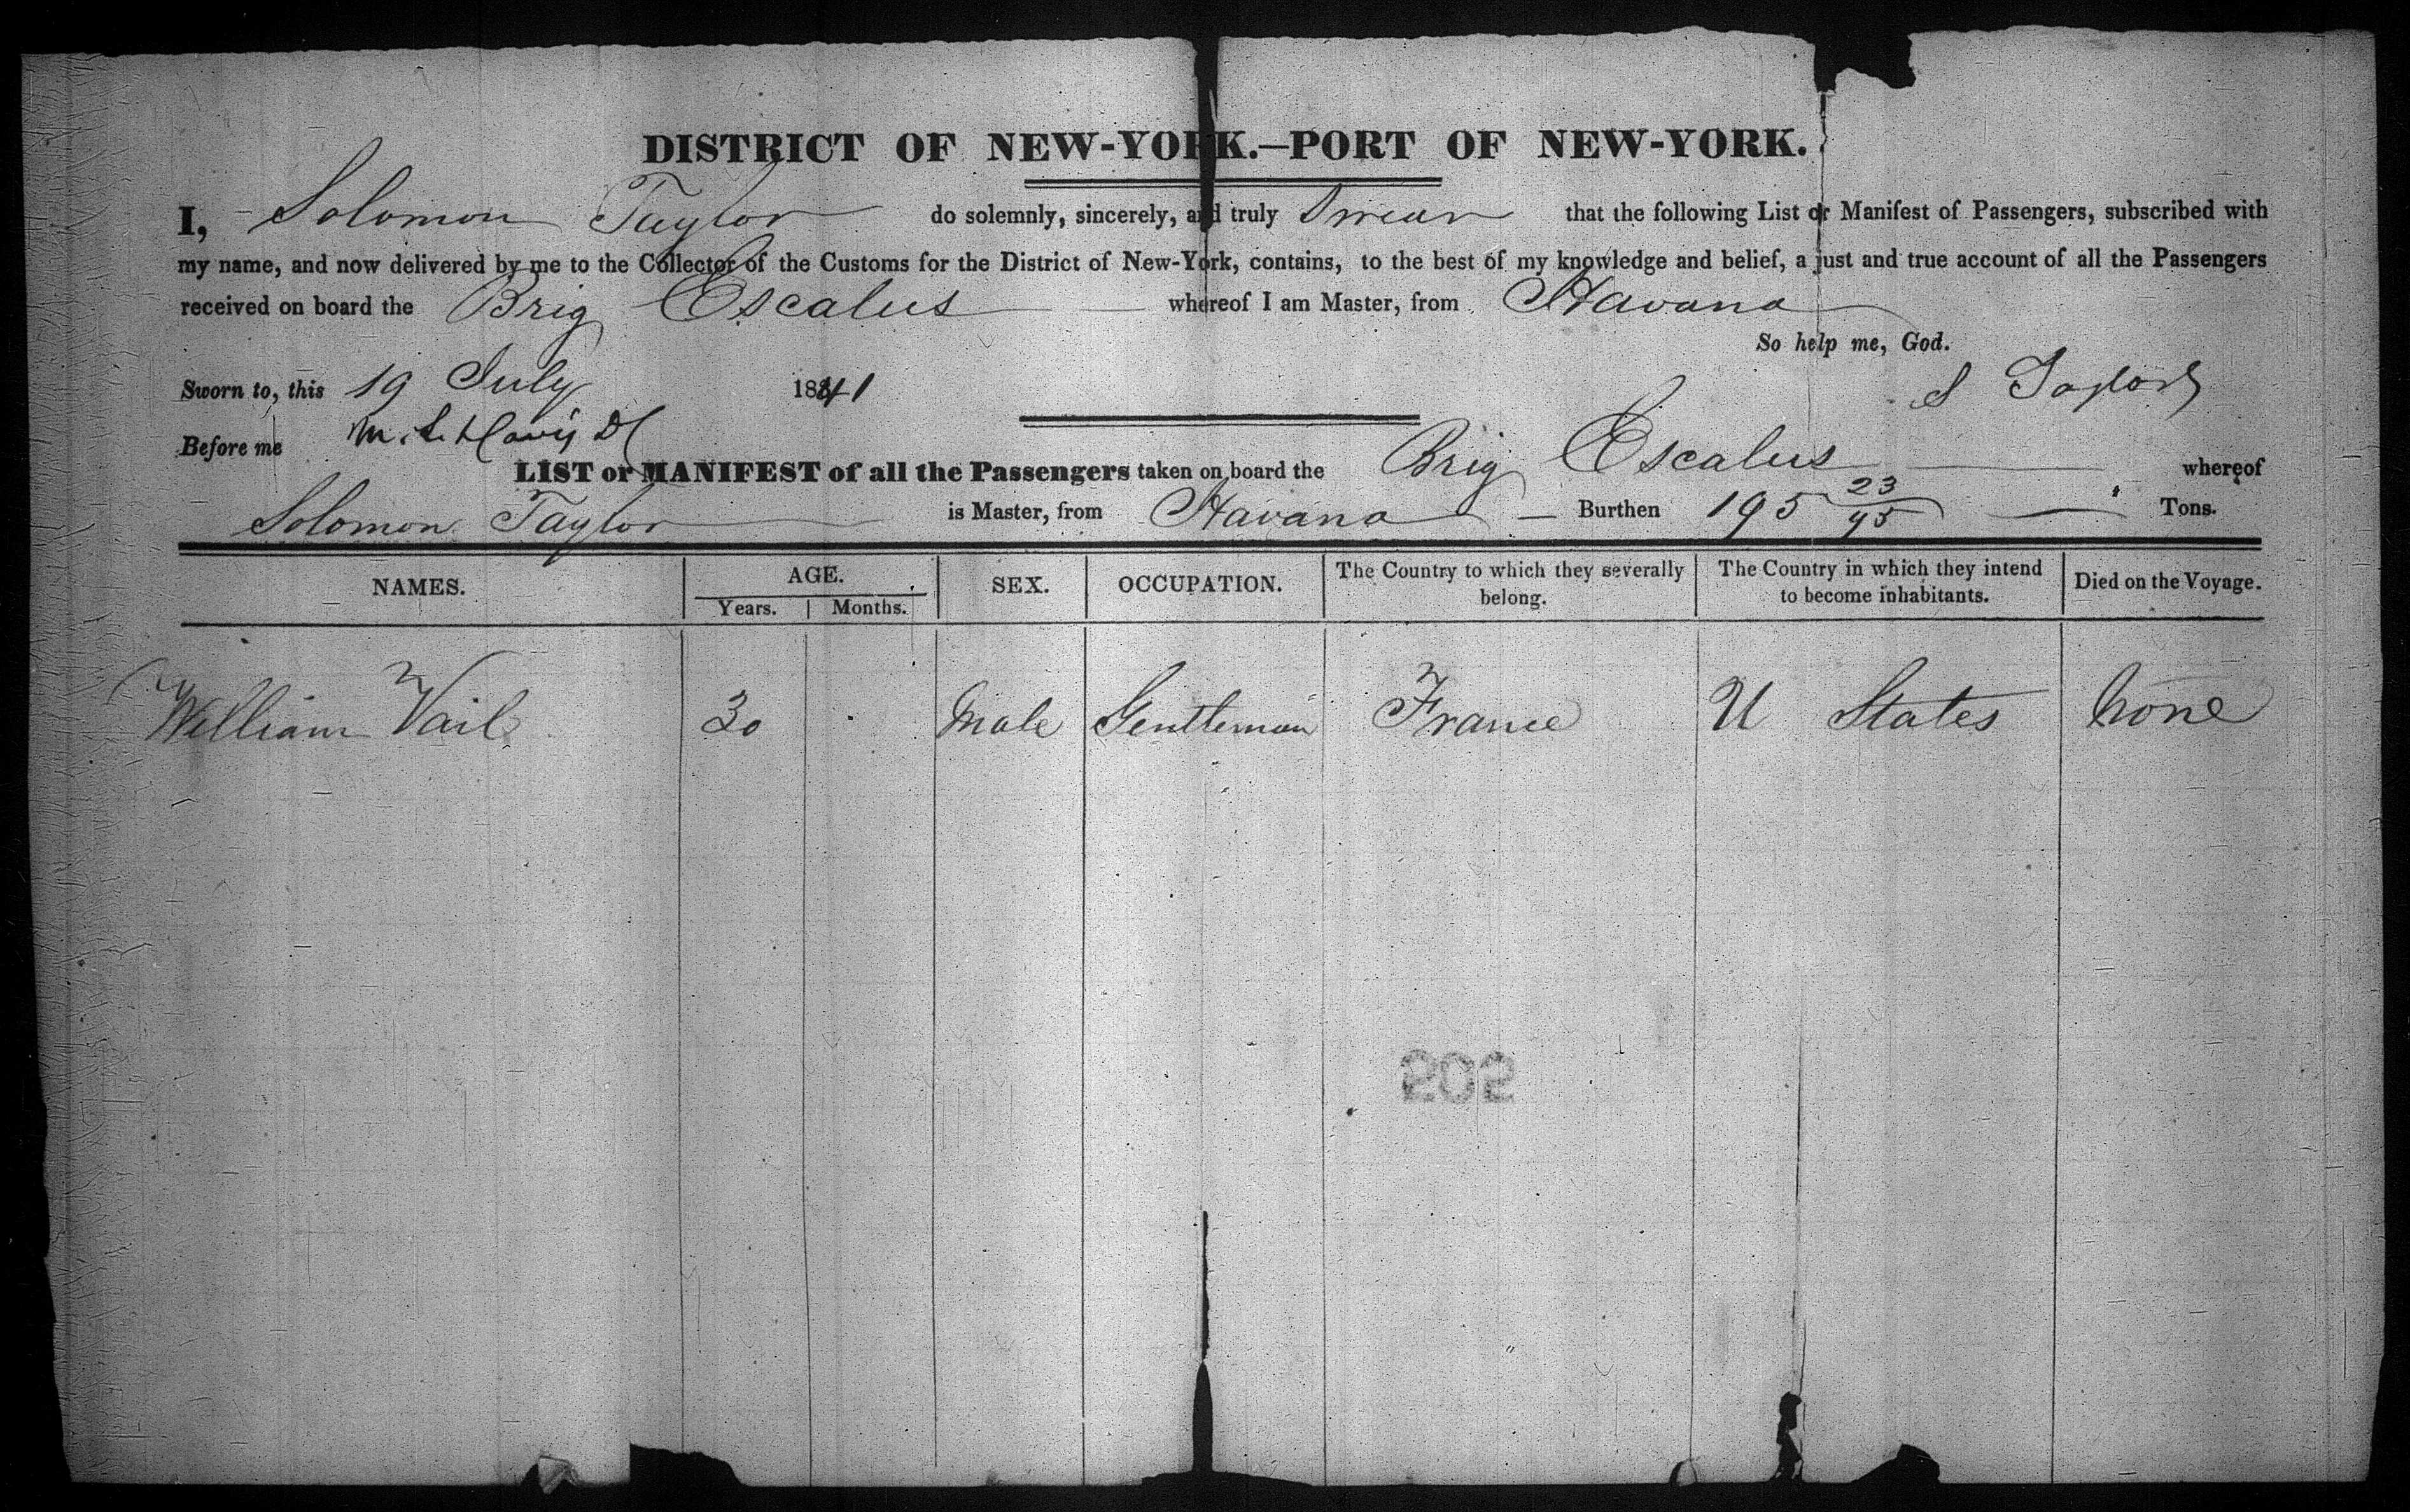 DISTRICT OF NEW-YORK.—PORT OF NEW-YORK.
I, Solomon Taylor do solemnly, sincerely, and truly Swear that the following List or Manifest of Passengers, subscribed with
my name, and now delivered by me to the Collector of the Customs for the District of New-York, contains, to the best of my knowledge and belief, a just and true account of all the Passengers
received on board the Brig Escalus whereof I am Master, from Havana
So help me, God.
Sworn to, this 19 July 1841
S Taylor
Before me
LIST or MANIFEST of all the Passengers taken on board the Brig Escalus whereof
Solomon Taylor is Master, from Havana Burthen 195 23/95 Tons.
NAMES. AGE. SEX. OCCUPATION. The Country to which they severally belong. The Country in which they intend to become inhabitants. Died on the Voyage.
Years. Months.
William Vail 30 Male Gentleman France U States None
202